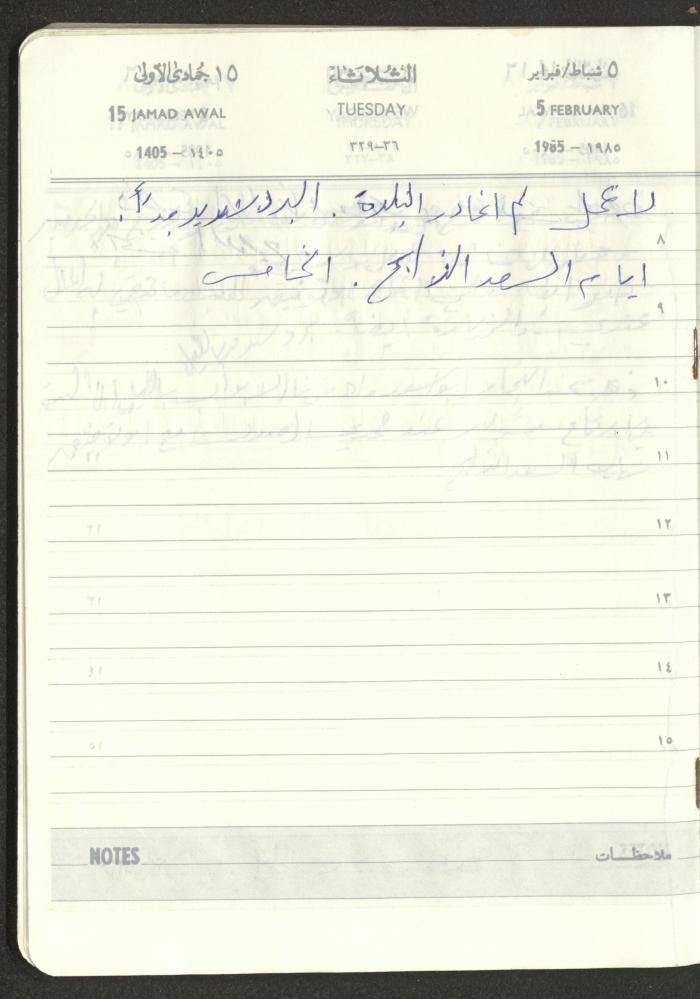 ٥ شباط/فبراير الثلاثاء ١٥ جمادى الأولى
5 FEBRUARY TUESDAY 15 JAMAD AWAL
1985 - ١٩٨٥ ٣٦-٣٢٩ 1405 - ١٤٠٥
لا عمل لم اغادر البلدة . البرد شديد جداً .
٨
ايام السعد الذابح . الخامس
٩
١٠
١١
١٢
١٣
١٤
١٥
NOTES ملاحظات